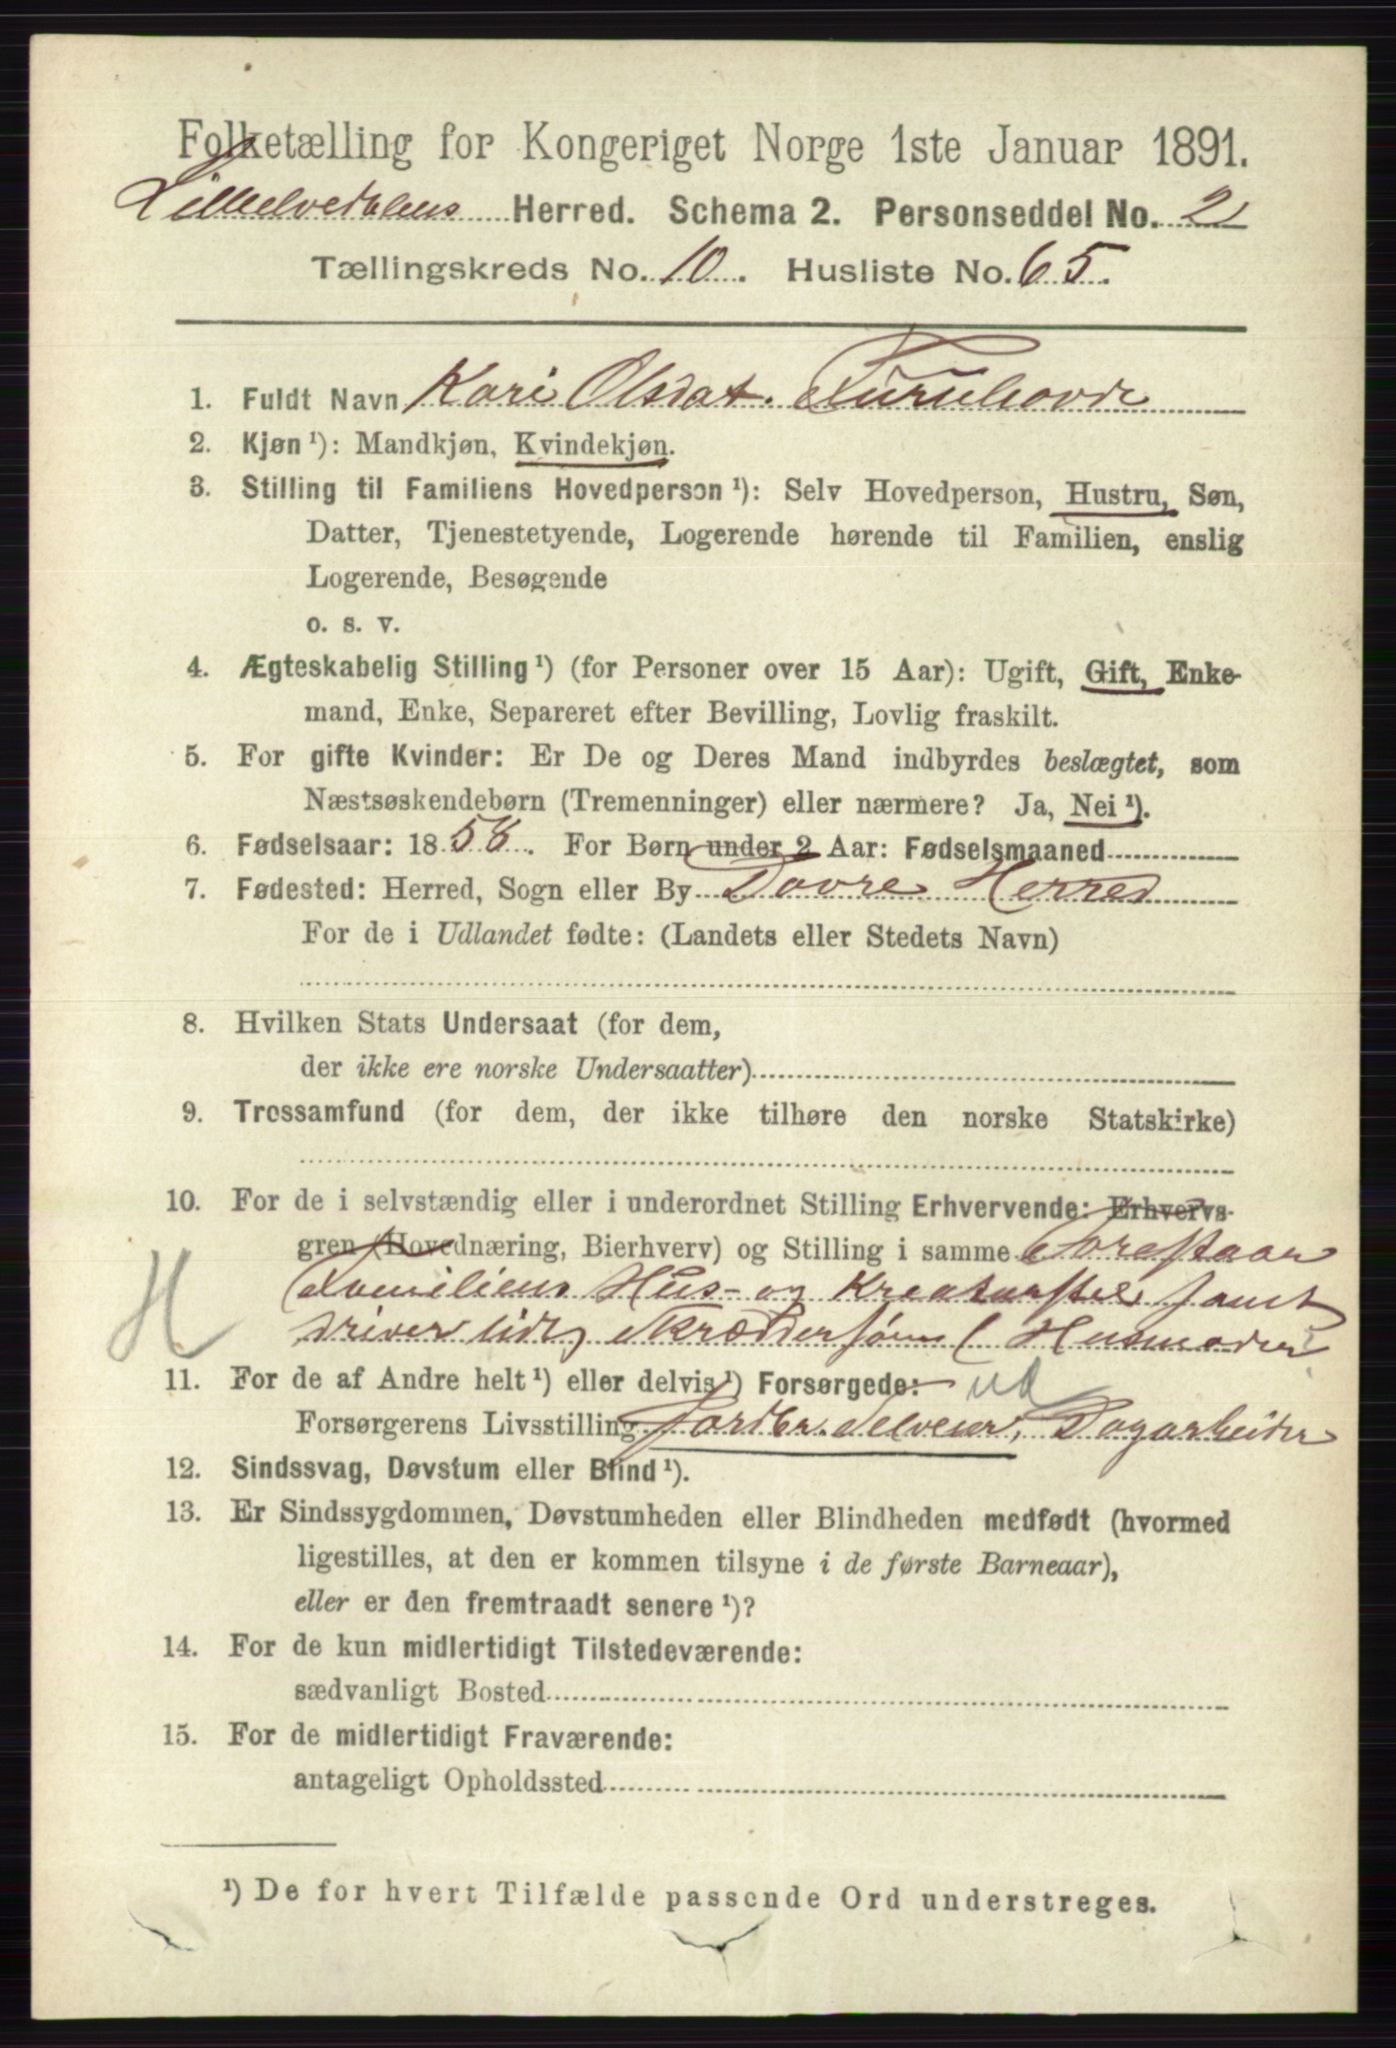 Folketælling for Kongeriget Norge 1ste Januar 1891.
Lilleelvedalens Herred. Schema 2. Personseddel No. 2
Tællingskreds No. 10. Husliste No. 65.
1. Fuldt Navn Kari Olsdat. Furuhovde
2. Kjøn ¹): Mandkjøn, Kvindekjøn.
3. Stilling til Familiens Hovedperson ¹): Selv Hovedperson, Hustru, Søn,
Datter, Tjenestetyende, Logerende hørende til Familien, enslig
Logerende, Besøgende
o. s. v.
4. Ægteskabelig Stilling ¹) (for Personer over 15 Aar): Ugift, Gift, Enke-
mand, Enke, Separeret efter Bevilling, Lovlig fraskilt.
5. For gifte Kvinder: Er De og Deres Mand indbyrdes beslægtet, som
Næstsøskendebørn (Tremenninger) eller nærmere? Ja, Nei ¹).
6. Fødselsaar: 1858. For Børn under 2 Aar: Fødselsmaaned
7. Fødested: Herred, Sogn eller By Dovre Herred
For de i Udlandet fødte: (Landets eller Stedets Navn)
8. Hvilken Stats Undersaat (for dem,
der ikke ere norske Undersaatter)
9. Trossamfund (for dem, der ikke tilhøre den norske Statskirke)
10. For de i selvstændig eller i underordnet Stilling Erhvervende: Erhvervs-
gren (Hovednæring, Bierhverv) og Stilling i samme Forestaar
H Familiens Hus- og Kreaturstel samt
driver lidt Skræddersøm (Husmoder
11. For de af Andre helt ¹) eller delvis ¹) Forsørgede:
Forsørgerens Livsstilling Jordbr. Selveier, Dagarbeider
12. Sindssvag, Døvstum eller Blind ¹).
13. Er Sindssygdommen, Døvstumheden eller Blindheden medfødt (hvormed
ligestilles, at den er kommen tilsyne i de første Barneaar),
eller er den fremtraadt senere ¹)?
14. For de kun midlertidigt Tilstedeværende:
sædvanligt Bosted
15. For de midlertidigt Fraværende:
antageligt Opholdssted
¹) De for hvert Tilfælde passende Ord understreges.